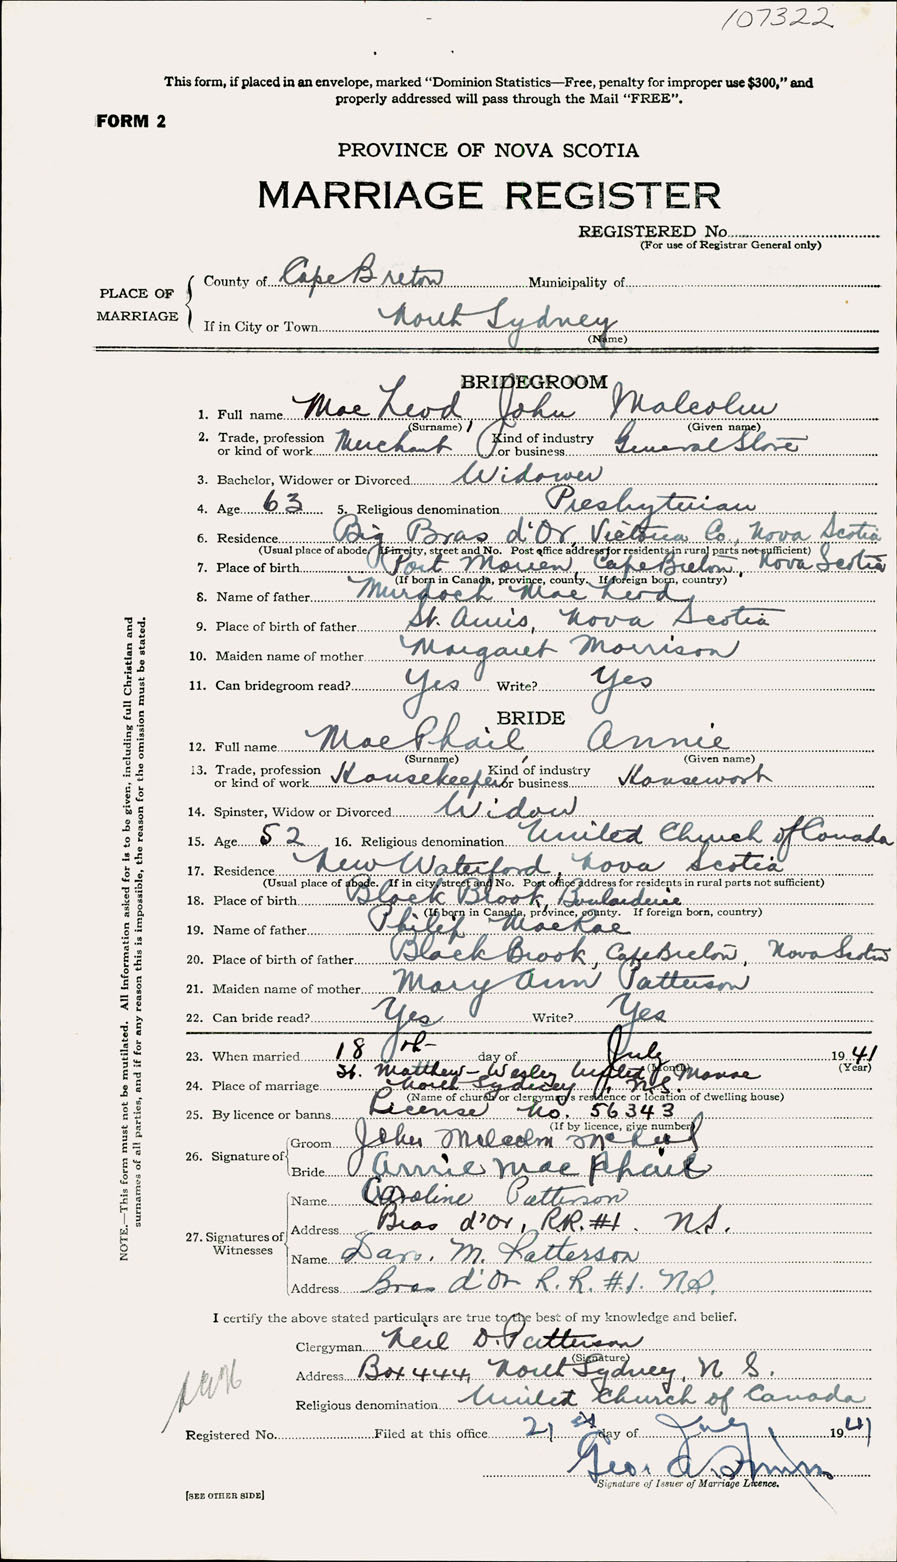 107322
This form, if placed in an envelope, marked "Dominion Statistics—Free, penalty for improper use $300," and
properly addressed will pass through the Mail "FREE".
FORM 2
PROVINCE OF NOVA SCOTIA
MARRIAGE REGISTER
REGISTERED No.
(For use of Registrar General only)
PLACE OF MARRIAGE
County of Cape Breton Municipality of
If in City or Town North Sydney
(Name)
BRIDEGROOM
1. Full name Mac Leod, John Malcolm
(Surname) (Given name)
2. Trade, profession or kind of work Merchant Kind of industry or business General Store
3. Bachelor, Widower or Divorced Widower
4. Age 63 5. Religious denomination Presbyterian
6. Residence Big Bras d'Or, Victoria Co., Nova Scotia
(Usual place of abode. If in city, street and No. Post office address for residents in rural parts not sufficient)
7. Place of birth Port Morien, Cape Breton, Nova Scotia
(If born in Canada, province, county. If foreign born, country)
8. Name of father Murdoch Mac Leod
9. Place of birth of father St. Anns, Nova Scotia
10. Maiden name of mother Margaret Morrison
11. Can bridegroom read? Yes Write? Yes
BRIDE
12. Full name MacPhail, Annie
(Surname) (Given name)
13. Trade, profession or kind of work Housekeeper Kind of industry or business Housework
14. Spinster, Widow or Divorced Widow
15. Age 52 16. Religious denomination United Church of Canada
17. Residence New Waterford, Nova Scotia
(Usual place of abode. If in city, street and No. Post office address for residents in rural parts not sufficient)
18. Place of birth Black Brook, Boularderie
(If born in Canada, province, county. If foreign born, country)
19. Name of father Philip MacRae
20. Place of birth of father Black Brook, Cape Breton, Nova Scotia
21. Maiden name of mother Mary Ann Patterson
22. Can bride read? Yes Write? Yes
23. When married 18th day of July 1941
(Month) (Year)
St. Matthew-Wesley United Manse
24. Place of marriage North Sydney, N.S.
(Name of church or clergyman's residence or location of dwelling house)
25. By licence or banns License No. 56343
(If by licence, give number)
26. Signature of
Groom John Malcolm McLeod
Bride Annie MacPhail
27. Signatures of Witnesses
Name Caroline Patterson
Address Bras d'Or, R.R. #1. N.S.
Name Dan. M. Patterson
Address Bras d'Or R.R. #1. N.S.
I certify the above stated particulars are true to the best of my knowledge and belief.
Clergyman Neil D. Patterson
(Signature)
Address Box 444, North Sydney, N.S.
Religious denomination United Church of Canada
Registered No. Filed at this office 21st day of July 1941
Geo. A.
Signature of Issuer of Marriage Licence.
[SEE OTHER SIDE]
NOTE.—This form must not be mutilated. All information asked for is to be given, including full Christian and
surnames of all parties, and if for any reason this is impossible, the reason for the omission must be stated.